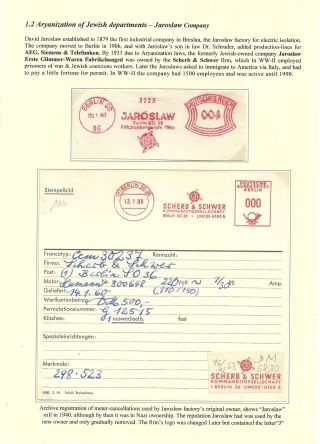 1.2 Aryanization of Jewish departments – Jaroslaw Company
David Jaroslaw established in 1879 the first industrial company in Breslau, the Jaroslaw factory for electric isolation.
The company moved to Berlin in 1906, and with Jaroslaw's son in law Dr. Schruder, added production-lines for
AEG, Siemens & Telefunken. By 1933 due to Aryanization laws, the formerly Jewish-owned company Jaroslaw
Erste Glimmer-Waren Fabrikchsnged was owned by the Scherb & Schwer firm, which in WW-II employed
prisoners of war & Jewish coercion workers. Later the Jaroslaws asked to immigrate to America via Italy, and had
to pay a little fortune for permit. In WW-II the company had 1500 employees and was active until 1990.
BERLIN SO
36
3223
JAROSLAW
Berlin SO. 36
Reichenbergerstr. 79/80
DEUTSCHES REICH
004
Stempelbild
BERLIN SO 36
13.1.60
SCHERB & SCHWER
KOMMANDITGESELLSCHAFT
BERLIN SO 36 · LINCKE-UFER 8
DEUTSCHE
BUNDESPOST
BERLIN
000
Francotyp: Ccm 30237
Firma: Scherb & Schwer
Post: (1) Berlin SO 36
Motor: Hamann 300648 220
Geliefert: 14.1.60 (110/150)
Wertkartenbetrag: DM 500,-
Permutationsnummer: G 12515
Klischee: 1 auswechselb. fest
Spezialeinrichtungen:
Merkmale:
298.523
SCHERB & SCHWER
KOMMANDITGESELLSCHAFT
BERLIN 36 · LINCKE-UFER 8
Archive registration of meter-cancellations used by Jaroslaw factory's original owner, shows "Jaroslaw"
still in 1940, although by then it was in Nazi ownership. The reputation Jaroslaw had was used by the
new owner and only gradually removed. The firm's logo was changed Later but contained the letter"J"